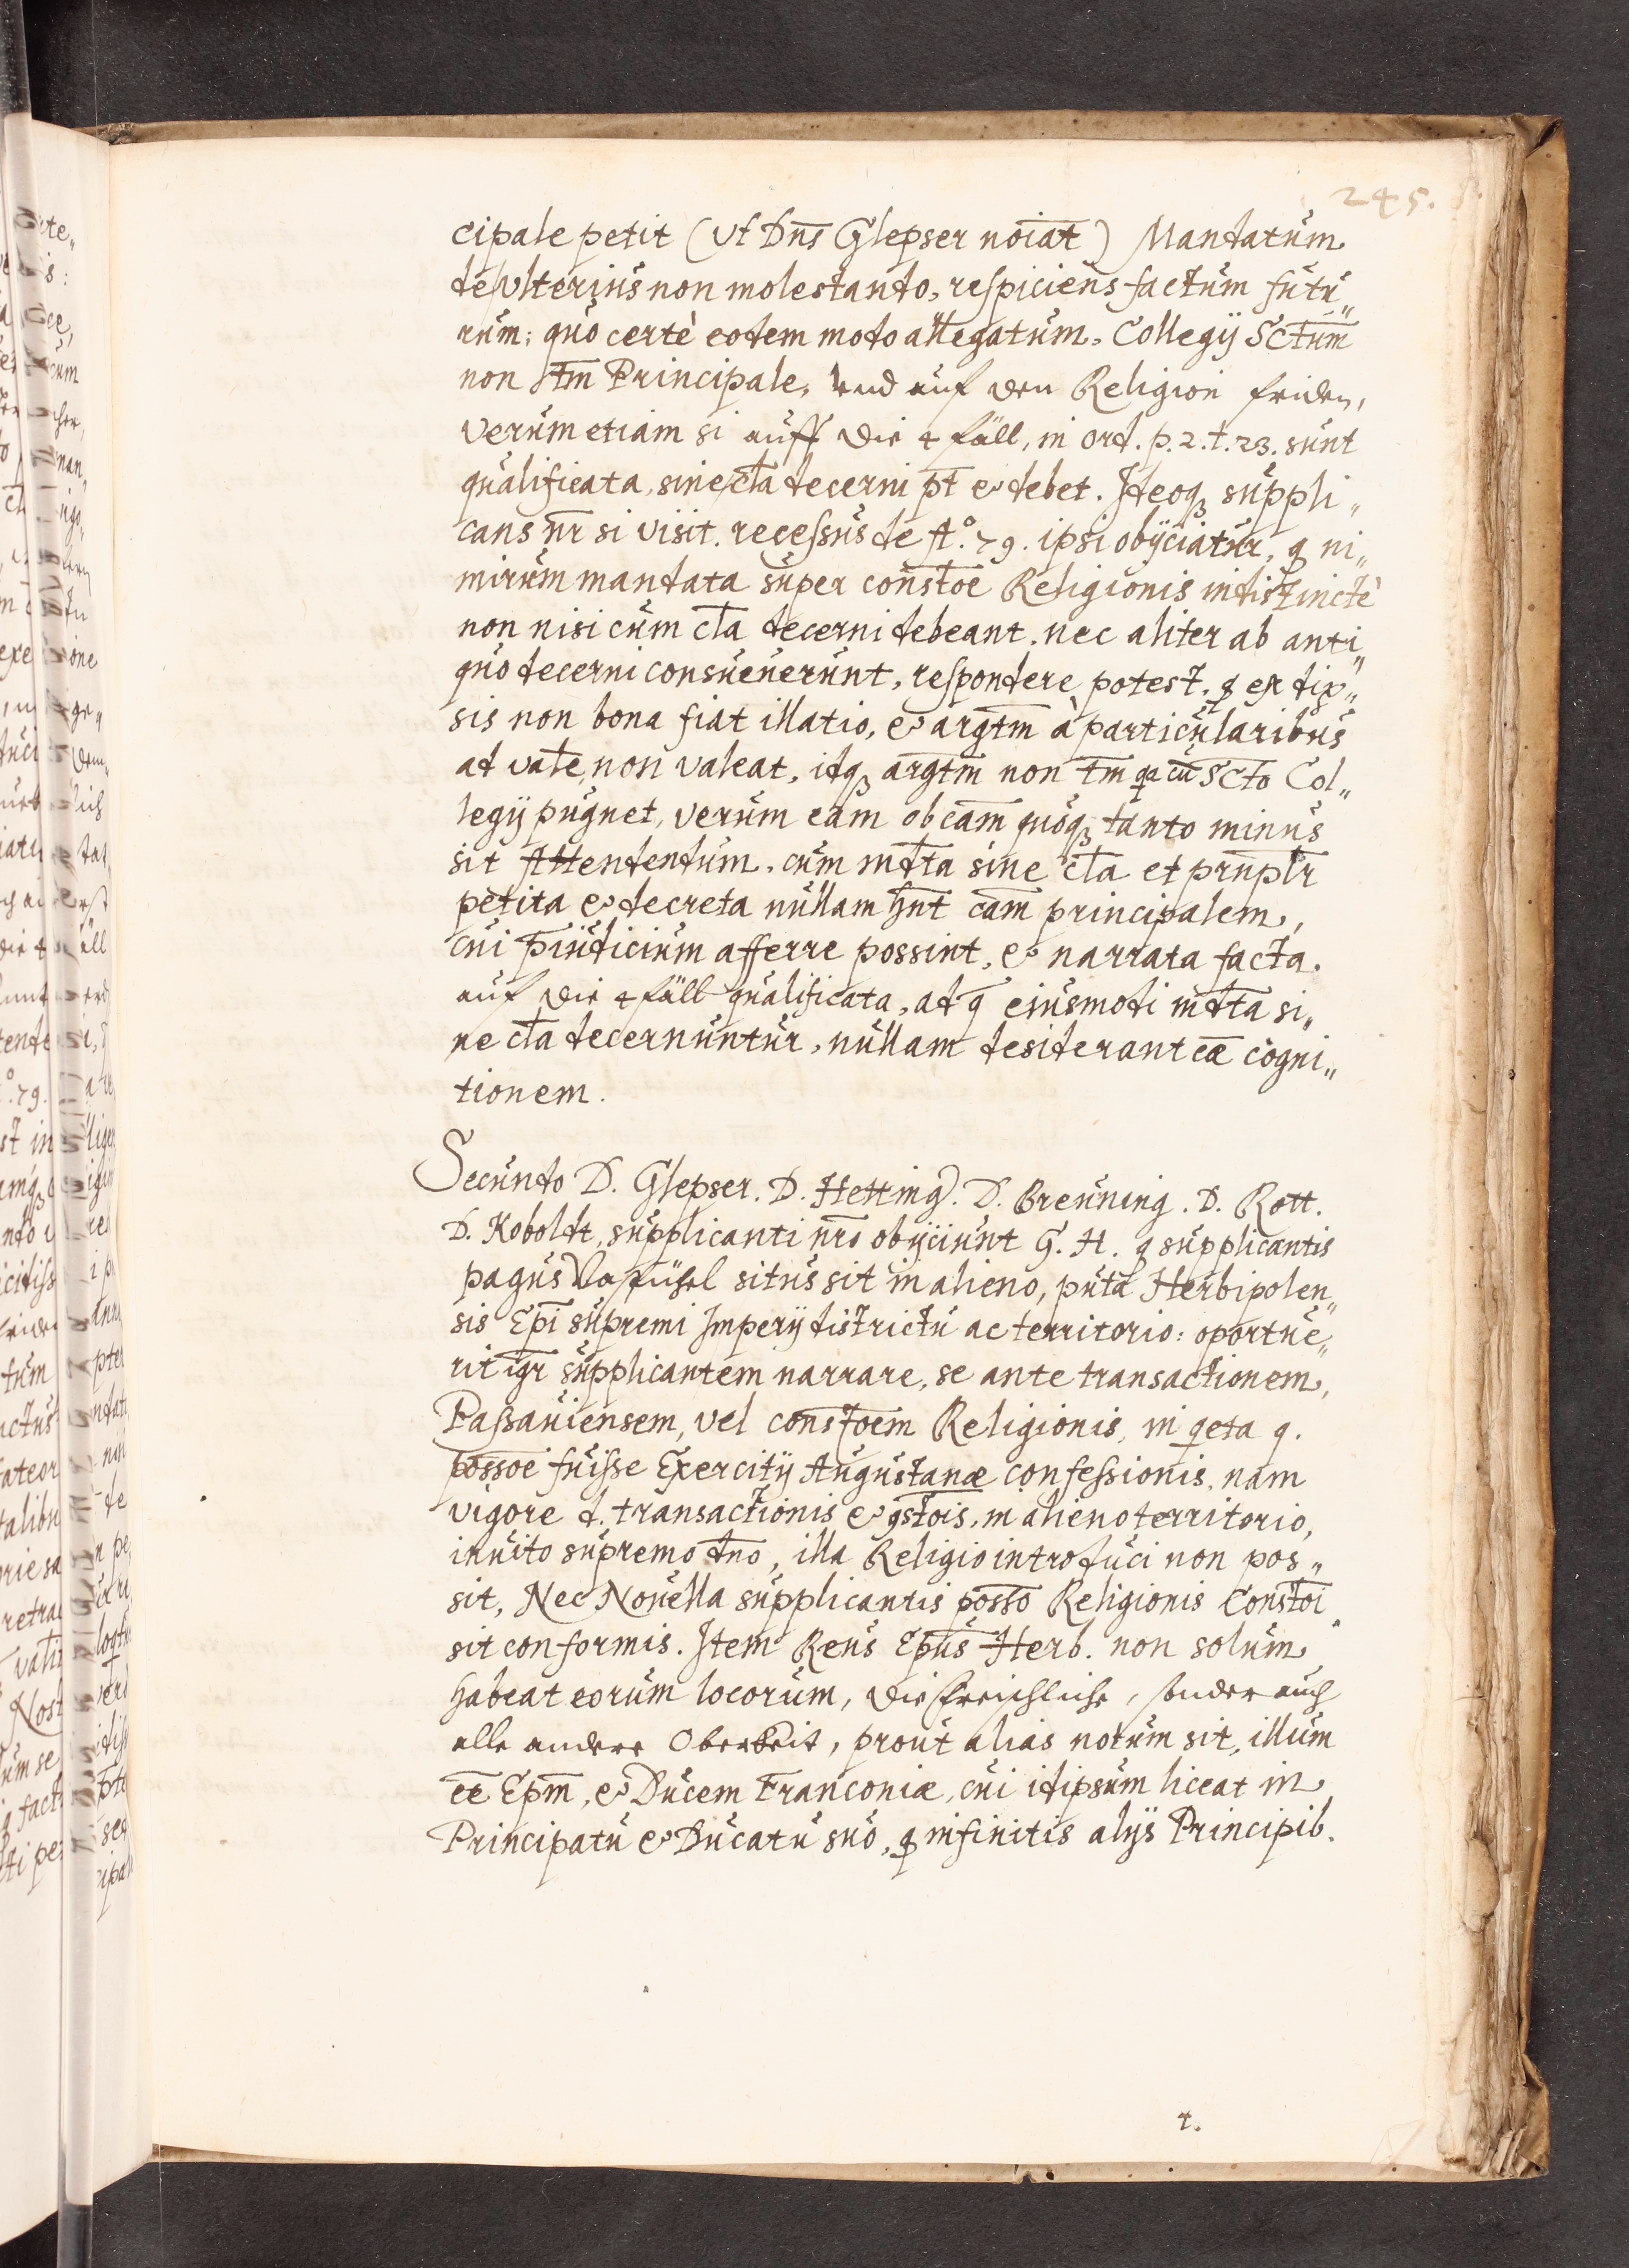 245.
cipale petit (vt Dn̄s Glepser nōiat) Mandatum
de vlterius non molestando, respiciens factum futu„
rum; quo certè eodem modo allegatum, Collegij Sctūm
non tm̄ Principale, vnd auf den Religion friden,
verum etiam si auff die 4 fäll, in ord. p. 2. t. 23. sunt
qualificata, sine cl̄a decerni pt̄ & debet. Ideoqꝫ suppli„
cans nr̄ si visit. recessus de Aº. 79. ipsi obijciatur, q ni„
mirum mandata super constōe Religionis indistinctè
non nisi cum cl̄a decerni debeant, nec aliter ab anti„
quo decerni consueuerunt, respondere potest, q ex dip„
sis non bona fiat illatio, & argtm̄ à particularibus
ad vale, non valeat, idqꝫ argtm̄ non tm̄ qa cū Scto Col„
legij pugnet, verum eam ob cam̄ quoqꝫ tanto minus
sit Attendendum, cum mdta sine cl̄a et prn̄plr
petita & decreta nullam hn̄t cam̄ principalem,
cui p̄iudicium afferre possint, & narrata facta,
auf die 4 fäll qualificata, ad q̄ eiusmodi mdta si„
ne cl̄a decernuntur, nullam desiderant cæ cogni„
tionem.
Secundo D. Glepser. D. Hetting. D. Breuning. D. Rott.
D. Koboldt, supplicanti nr̄o obijciunt G. H. q supplicantis
pagus situs sit in alieno, puta Herbipolen„
sis Ep̄i supremi Imperij districtu ac territorio: oportue„
rit igr̄ supplicantem narrare, se ante transactionem,
Passauiensem, vel constōem Religionis, in qeta q.
possōe fuisse Exercitij Augustanæ confessionis, nam
vigore d. transactionis & 9stōis, in alieno territorio,
inuito supremo dn̄o, illa Religio introduci non pos„
sit, Nec Nouella supplicantis posso Religionis Constōi
sit conformis. Item Reus Ep̄us Herb. non solum
habeat eorum locorum, die freischliche, sonder auch
alle andere Oberkeit, prout alias notum sit, illum
ēe Ep̄m, & Ducem Franconiæ, cui idipsum liceat in
Principatu & Ducatu suo, q infinitis alijs Principib.
t.